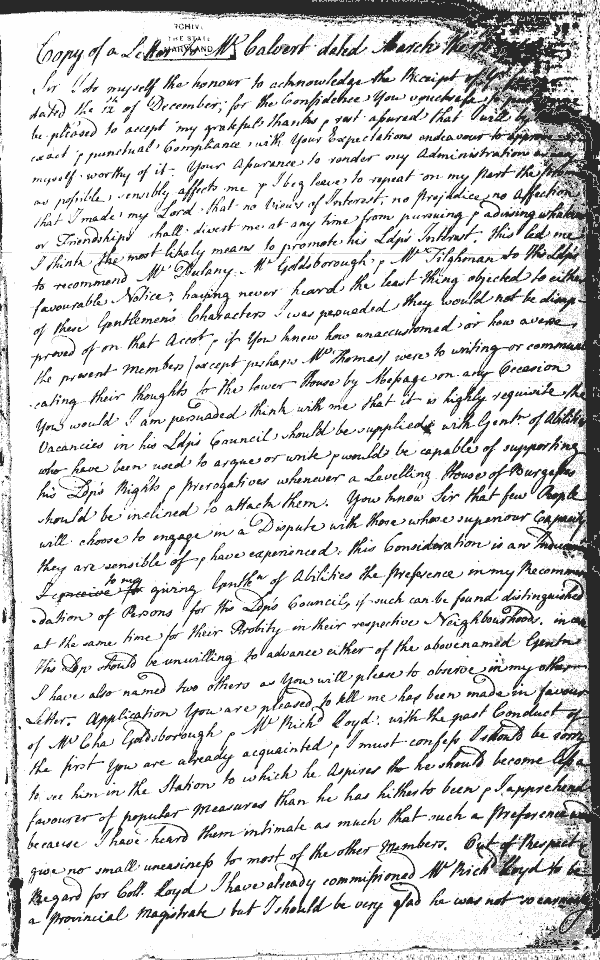 RCHIV
THE STATE
MARYLAND
Copy of a Letter to Mr Calvert dated March the
Sir I do myself the honour to acknowledge the Receipt of
dated the 12th of December; for the Confidence You vouchsafe to
be pleased to accept my grateful thanks & rest assured that I will by
exact & punctual Compliance with Your Expectations endeavour to approve
myself worthy of it. Your Assurance to render my Administration as easy
as possible, sensibly affects me & I beg leave to repeat on my part the
that I made my Lord that no Views of Interest, no Prejudice no Affection
or Friendships shall divert me at any time from pursuing & advising whatever
I think the most likely means to promote his Ldp's Interest. This led me
to recommend Mr Dulany Mr Goldsborough & Mr Tilghman to His Ldp's
favourable Notice; having never heard the least thing objected to either
of these Gentlemen's Characters I was persuaded they would not be disap-
proved of on that Acct, & if You knew how unaccustomed or how averse
the present Members (except perhaps Mr Thomas) were to writing or communi
cating their thoughts to the lower House by Message on any Occasion
You would I am persuaded think with me that it is highly requisite the
Vacancies in his Ldp's Council should be supplied with Gentn of Abilities
who have been used to argue or write & would be capable of supporting
his Ldp's Rights & prerogatives whenever a Levelling House of Burgesses
should be inclined to attack them. You know Sir that few People
will choose to engage in a Dispute with those whose superiour Capacity
they are sensible of & have experienced, this Consideration is an Inducem
to my giving Gentn of Abilities the Preference in my Recommen
dation of Persons for His Ldp's Council, if such can be found distinguished
at the same time for their Probity in their respective Neighbourhoods, in case
His Ldp should be unwilling to advance either of the abovenamed Gentn
I have also named two others as You will please to observe in my other
Letter. Application You are pleased to tell me has been made in favour
of Mr Cha Goldsborough & Mr Richd Lloyd: with the past Conduct of
the first You are already acquainted & I must confess I should be sorry
to see him in the Station to which he Aspires tho he should become less a
favourer of popular Measures than he has hitherto been & I apprehend
because I have heard them intimate as much that such a Preference wd
give no small uneasiness to most of the other Members. Out of Respect &
Regard for Coll Lloyd I have already commissioned Mr Richd Lloyd to be
a Provincial Magistrate but I should be very glad he was not so earnestly